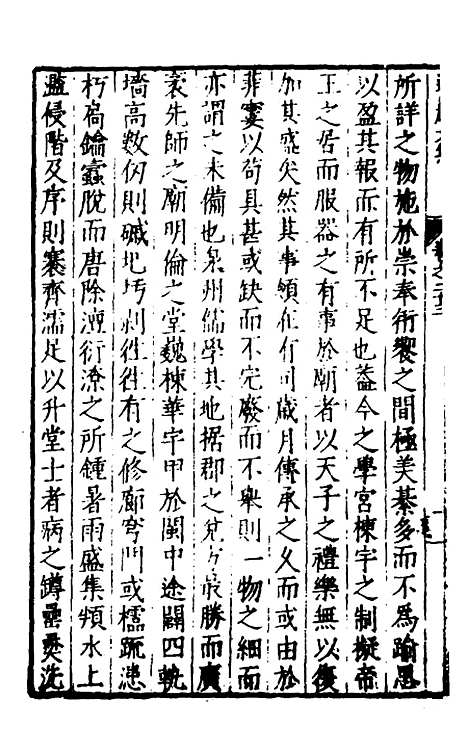 卷之二十三
所詳之物施於崇奉衎饗之間極美綦多而不為踰思
以盈其報而有所不足也蓋今之學宮棟宇之制擬帝
王之居而服器之有事於廟者以天子之禮樂無以復
加其盛矣然其事領在有司歲月傳承之久而或由於
菲窶以茍具甚或缺而不完廢而不舉則一物之細而
亦謂之未備也泉州儒學其地据郡之兌方最勝而廣
袤先師之廟明倫之堂魏棟華宇甲於閩中途闢四軌
墻高數仞則碱圮圬剥徃徃有之修廊穹門或檽疏漶
朽扃鑰蠧脫而唐除澶衍潦之所鍾暑雨盛集頖水上
溢侵階及序則褰齊濡足以升堂士者病之罇罍爨洗